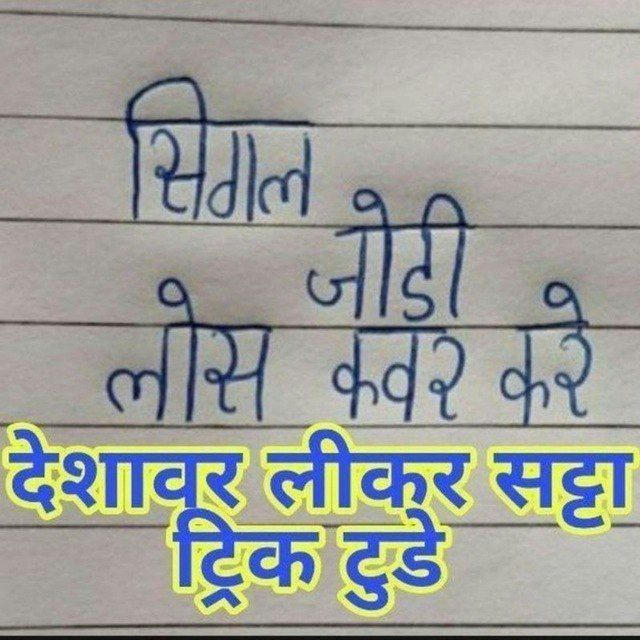 सिगल
जोडी
लोस कवर करे
देशावर लीकर सट्टा
ट्रिक टुडे